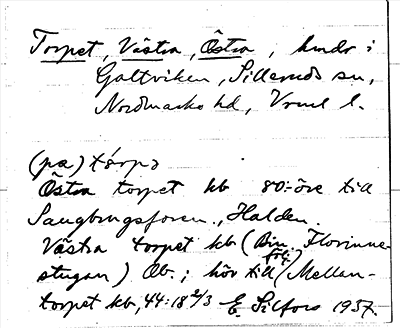 Torpet, Västra, Östra, hmdr i
Gottviken, Silleruds sn,
Nordmarks hd, Vrml l.
(pa) tårpə
Östra torpet kb 80:- öre till
Saugbrugsforen., Halden.
Västra torpet kb (Bin. Florinne-
stugan) Ob.; hör till / Mellan-
torpet kb, 44:18 2/3 E. Silfors 1937.